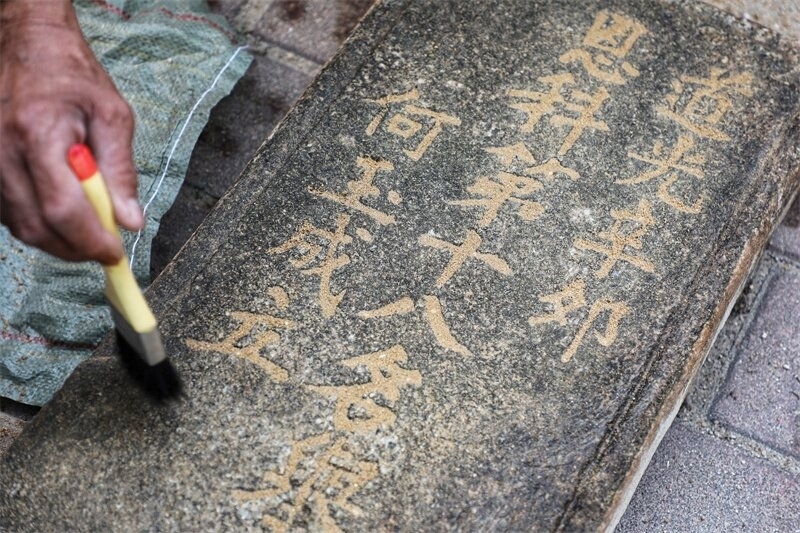 道光辛卯
恩科第十八名舉
何玉成立